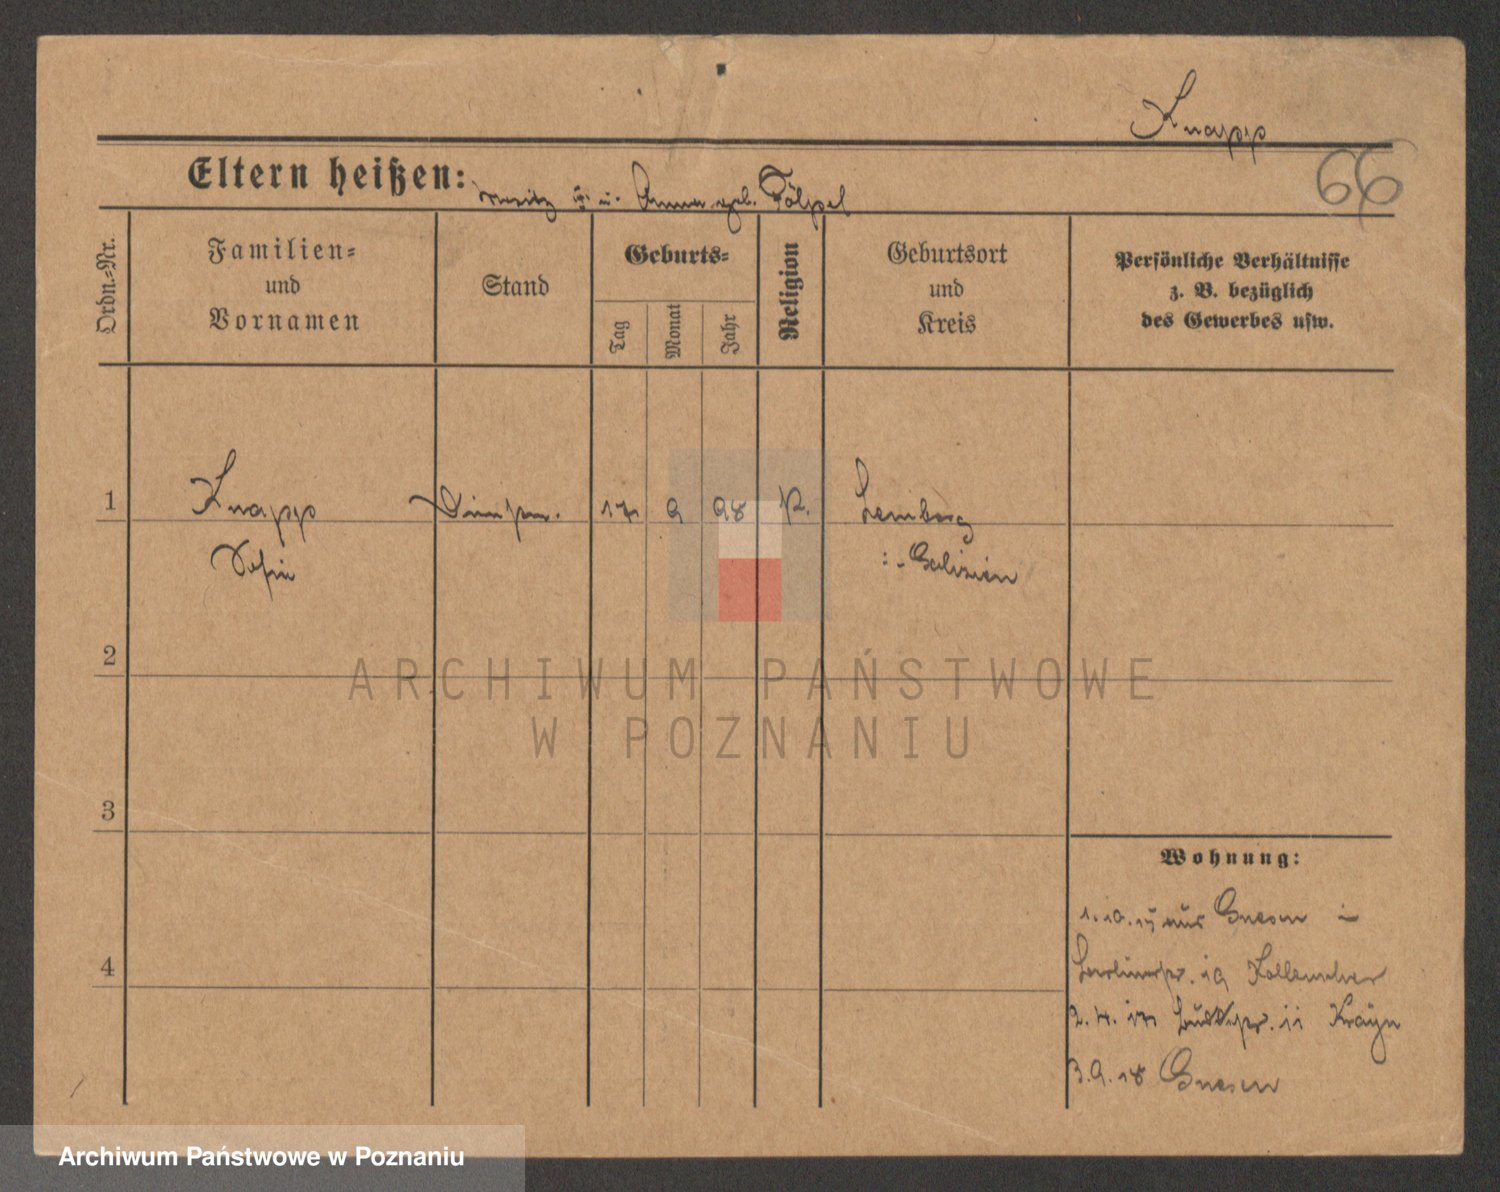 Knapp
66
Eltern heißen: Moritz u. Anna geb. Tölpel
Ordn.-Nr.
Familien-
und
Vornamen
Stand
Geburts-
Tag
Monat
Jahr
Religion
Geburtsort
und
Kreis
Persönliche Verhältnisse
z. B. bezüglich
des Gewerbes usw.
1
Knapp
Sofie
17
9
98
Lemberg
Galizien
2
3
4
ARCHIWUM PAŃSTWOWE
W POZNANIU
Wohnung:
1.10.15 aus Gnesen
19
2.4.17 11
3.9.18 Gnesen
Archiwum Państwowe w Poznaniu